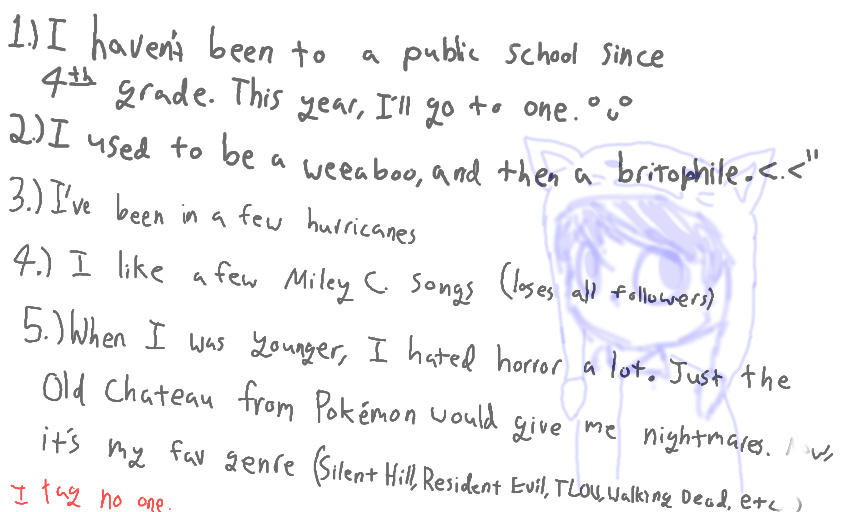 1.) I haven't been to a public school since
4th grade. This year, I'll go to one. °ᴗ°
2.) I used to be a weeaboo, and then a britophile. <.<"
3.) I've been in a few hurricanes
4.) I like a few Miley C. songs (loses all followers)
5.) When I was younger, I hated horror a lot. Just the
Old Chateau from Pokémon would give me nightmares. Now,
it's my fav genre (Silent Hill, Resident Evil, TLOU, Walking Dead, etc.)
I tag no one.